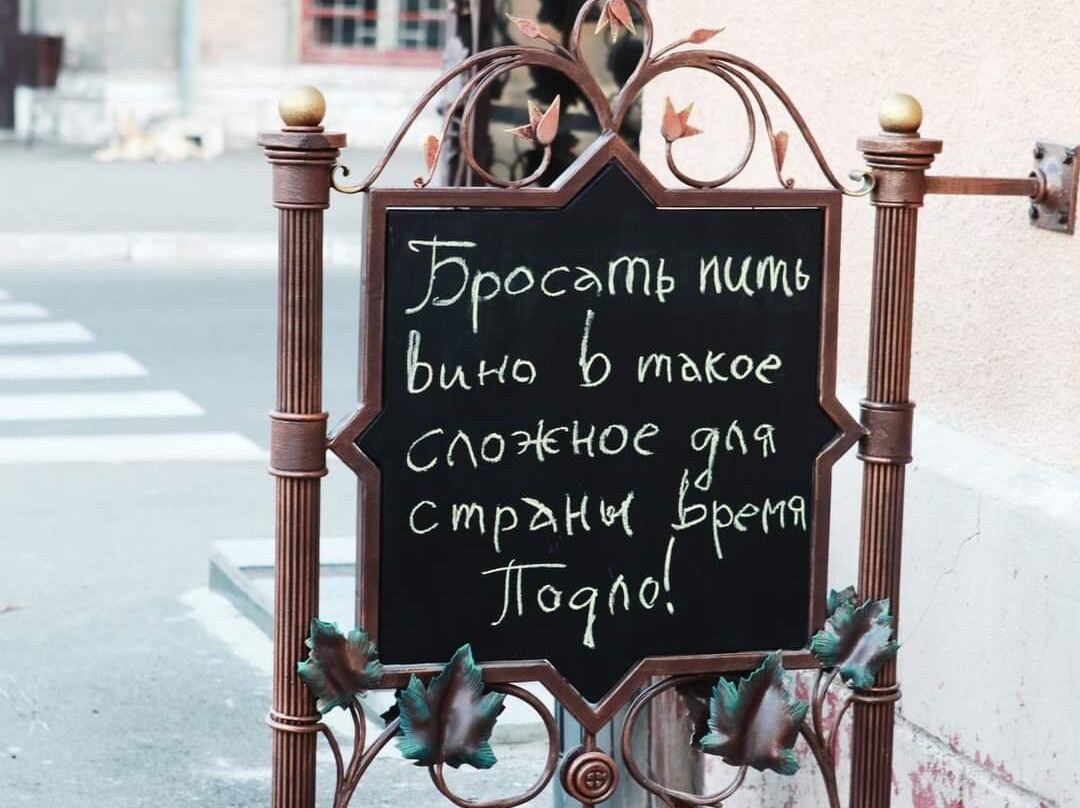 Бросать пить
вино в такое
сложное для
страны время
Подло!